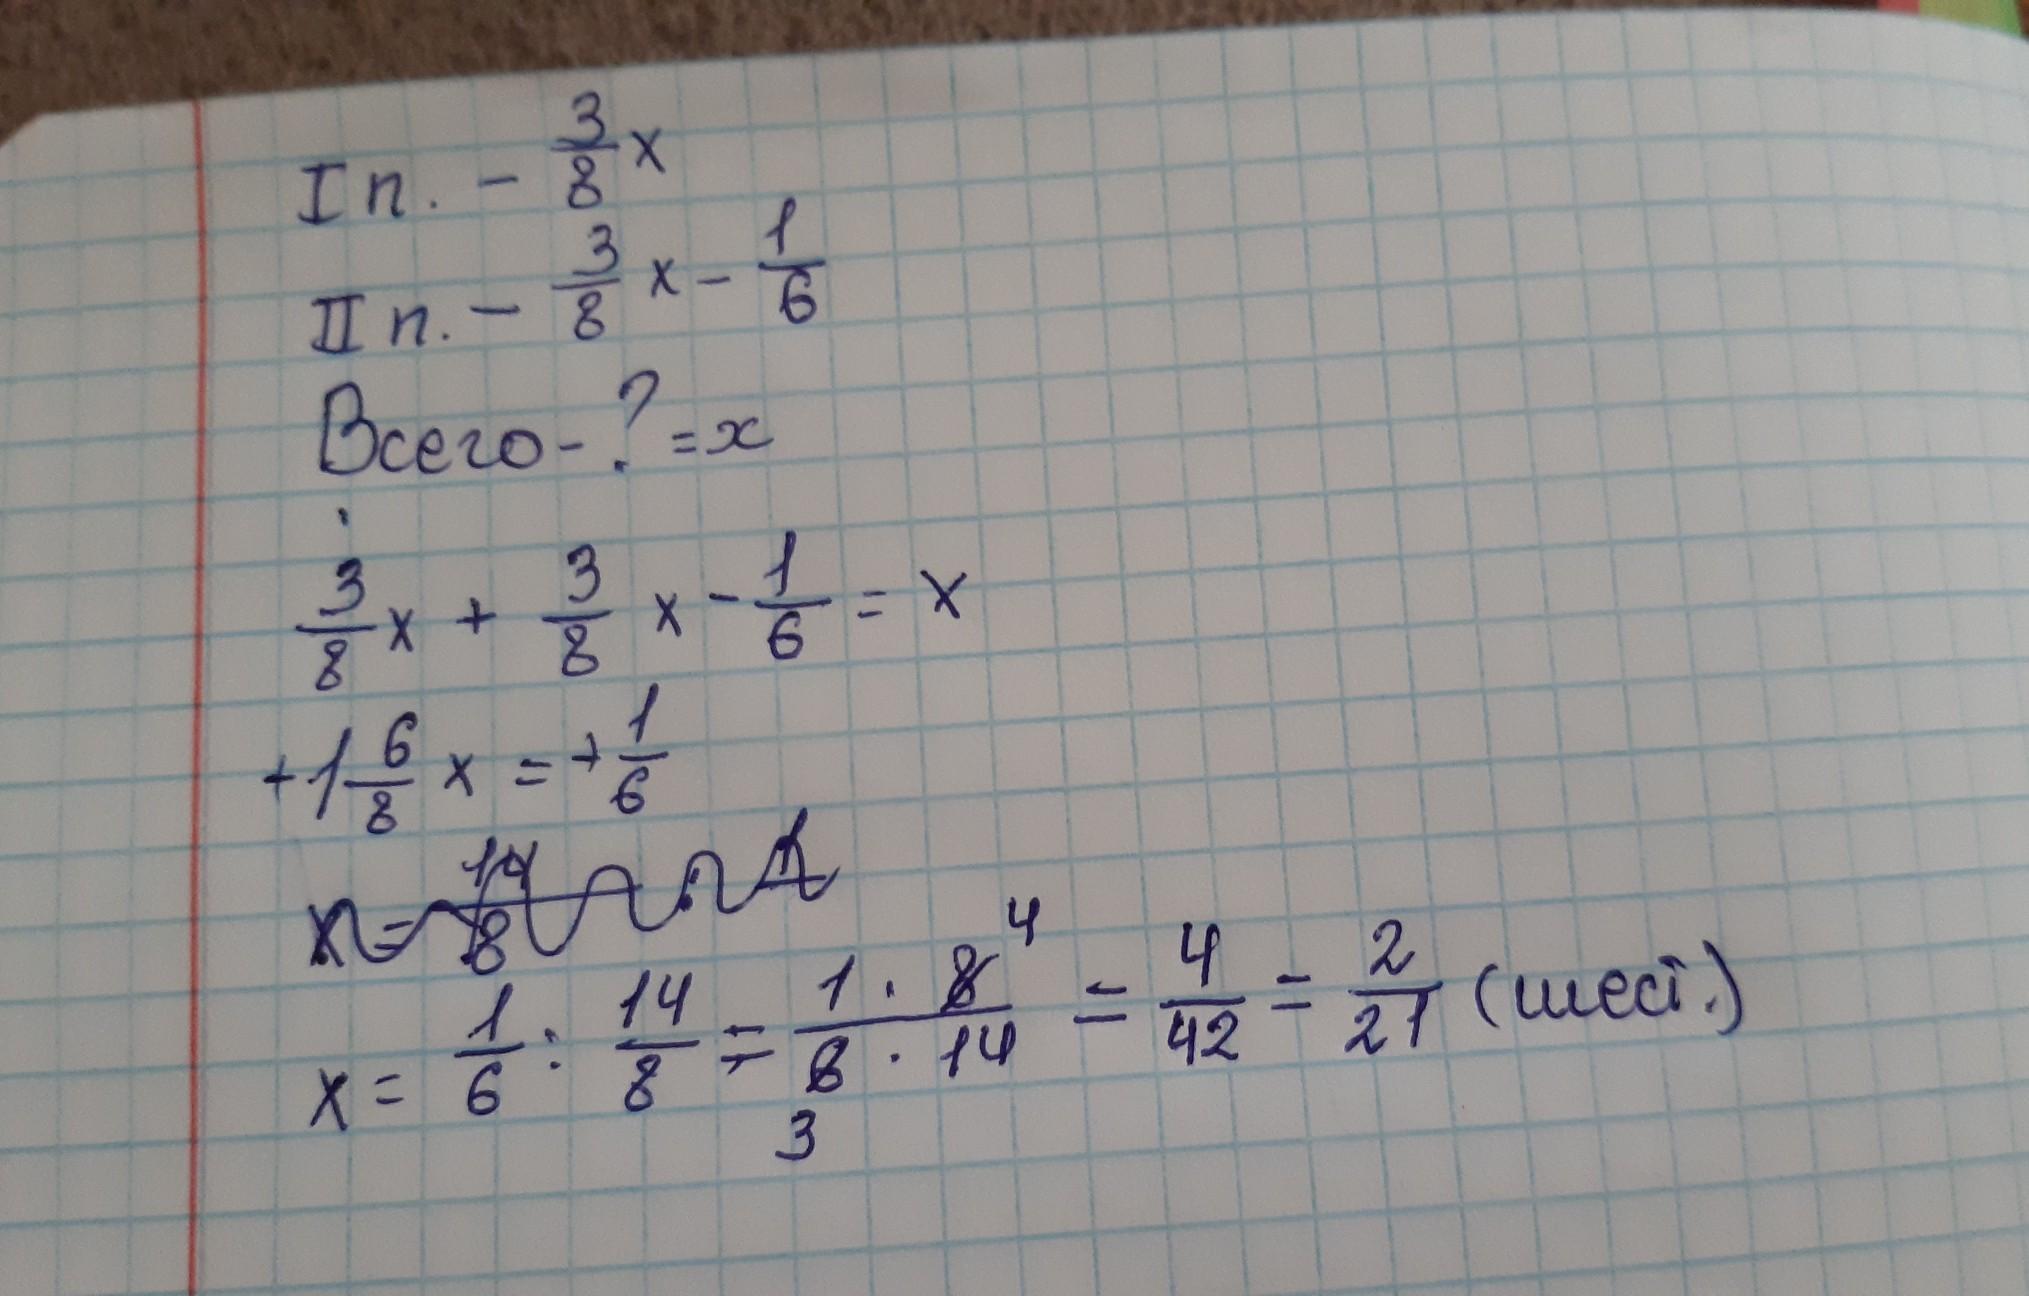 I п. - 3/8 x
II п. - 3/8 x - 1/6
Всего - ? = x
3/8 x + 3/8 x - 1/6 = x
+1 6/8 x = + 1/6
x = 1/6 : 14/8 = 1 · 8 4 / 6 · 14 3 = 4/42 = 2/21 (шест.)